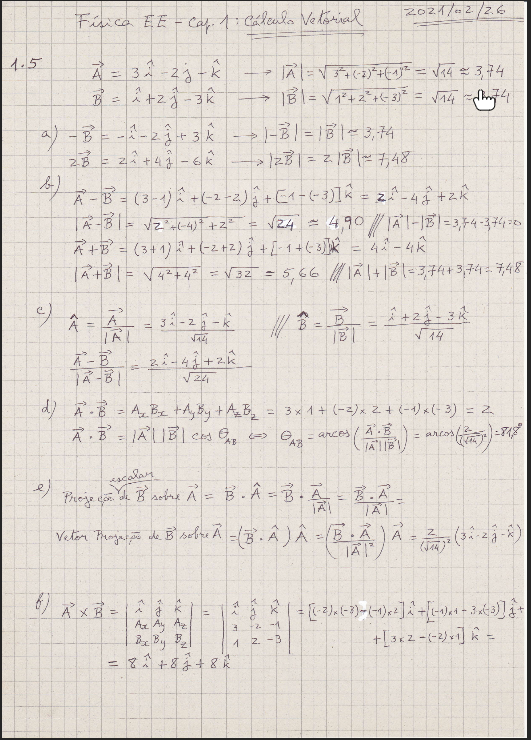 Física E.E - Cap. 1: Cálculo Vetorial 2021/02/26
1.5 A⃗ = 3î - 2ĵ - k̂ → |A⃗| = √(3²+(-2)²+(-1)²) = √14 ≈ 3,74
B⃗ = î + 2ĵ - 3k̂ → |B⃗| = √(1²+2²+(-3)²) = √14 ≈ 74
a) -B⃗ = -î - 2ĵ + 3k̂ → |-B⃗| = |B⃗| ≈ 3,74
2B⃗ = 2î + 4ĵ - 6k̂ → |2B⃗| = 2|B⃗| ≈ 7,48
b) A⃗ - B⃗ = (3-1)î + (-2-2)ĵ + [-1-(-3)]k̂ = 2î - 4ĵ + 2k̂
|A⃗ - B⃗| = √(2²+(-4)²+2²) = √24 ≈ 4,90 /// |A⃗|-|B⃗| = 3,74-3,74=0
A⃗ + B⃗ = (3+1)î + (-2+2)ĵ + [-1+(-3)]k̂ = 4î - 4k̂
|A⃗ + B⃗| = √(4²+4²) = √32 = 5,66 /// |A⃗|+|B⃗| = 3,74+3,74=7,48
c) Â = A⃗/|A⃗| = (3î - 2ĵ - k̂)/√14 /// B̂ = B⃗/|B⃗| = (î + 2ĵ - 3k̂)/√14
(A⃗ - B⃗)/|A⃗ - B⃗| = (2î - 4ĵ + 2k̂)/√24
d) A⃗ · B⃗ = AxBx + AyBy + AzBz = 3×1 + (-2)×2 + (-1)×(-3) = 2
A⃗ · B⃗ = |A⃗| |B⃗| cos θAB ⇔ θAB = arcos(A⃗·B⃗/|A⃗||B⃗|) = arcos(2/(√14)²) = 81,8°
escalar
e) Projeção de B⃗ sobre A⃗ = B⃗ · Â = B⃗ · A⃗/|A⃗| = B⃗ · A⃗/|A⃗| =
Vetor Projeção de B⃗ sobre A⃗ = (B⃗ · Â) Â = (B⃗ · A⃗/|A⃗|²) A⃗ = 2/(√14)² (3î - 2ĵ - k̂)
f) A⃗ × B⃗ = |î ĵ k̂; Ax Ay Az; Bx By Bz| = |î ĵ k̂; 3 -2 -1; 1 2 -3| = [(-2)×(-3)-(-1)×2]î + [(-1)×1 - 3×(-3)]ĵ +
+ [3×2 - (-2)×1] k̂ =
= 8î + 8ĵ + 8k̂